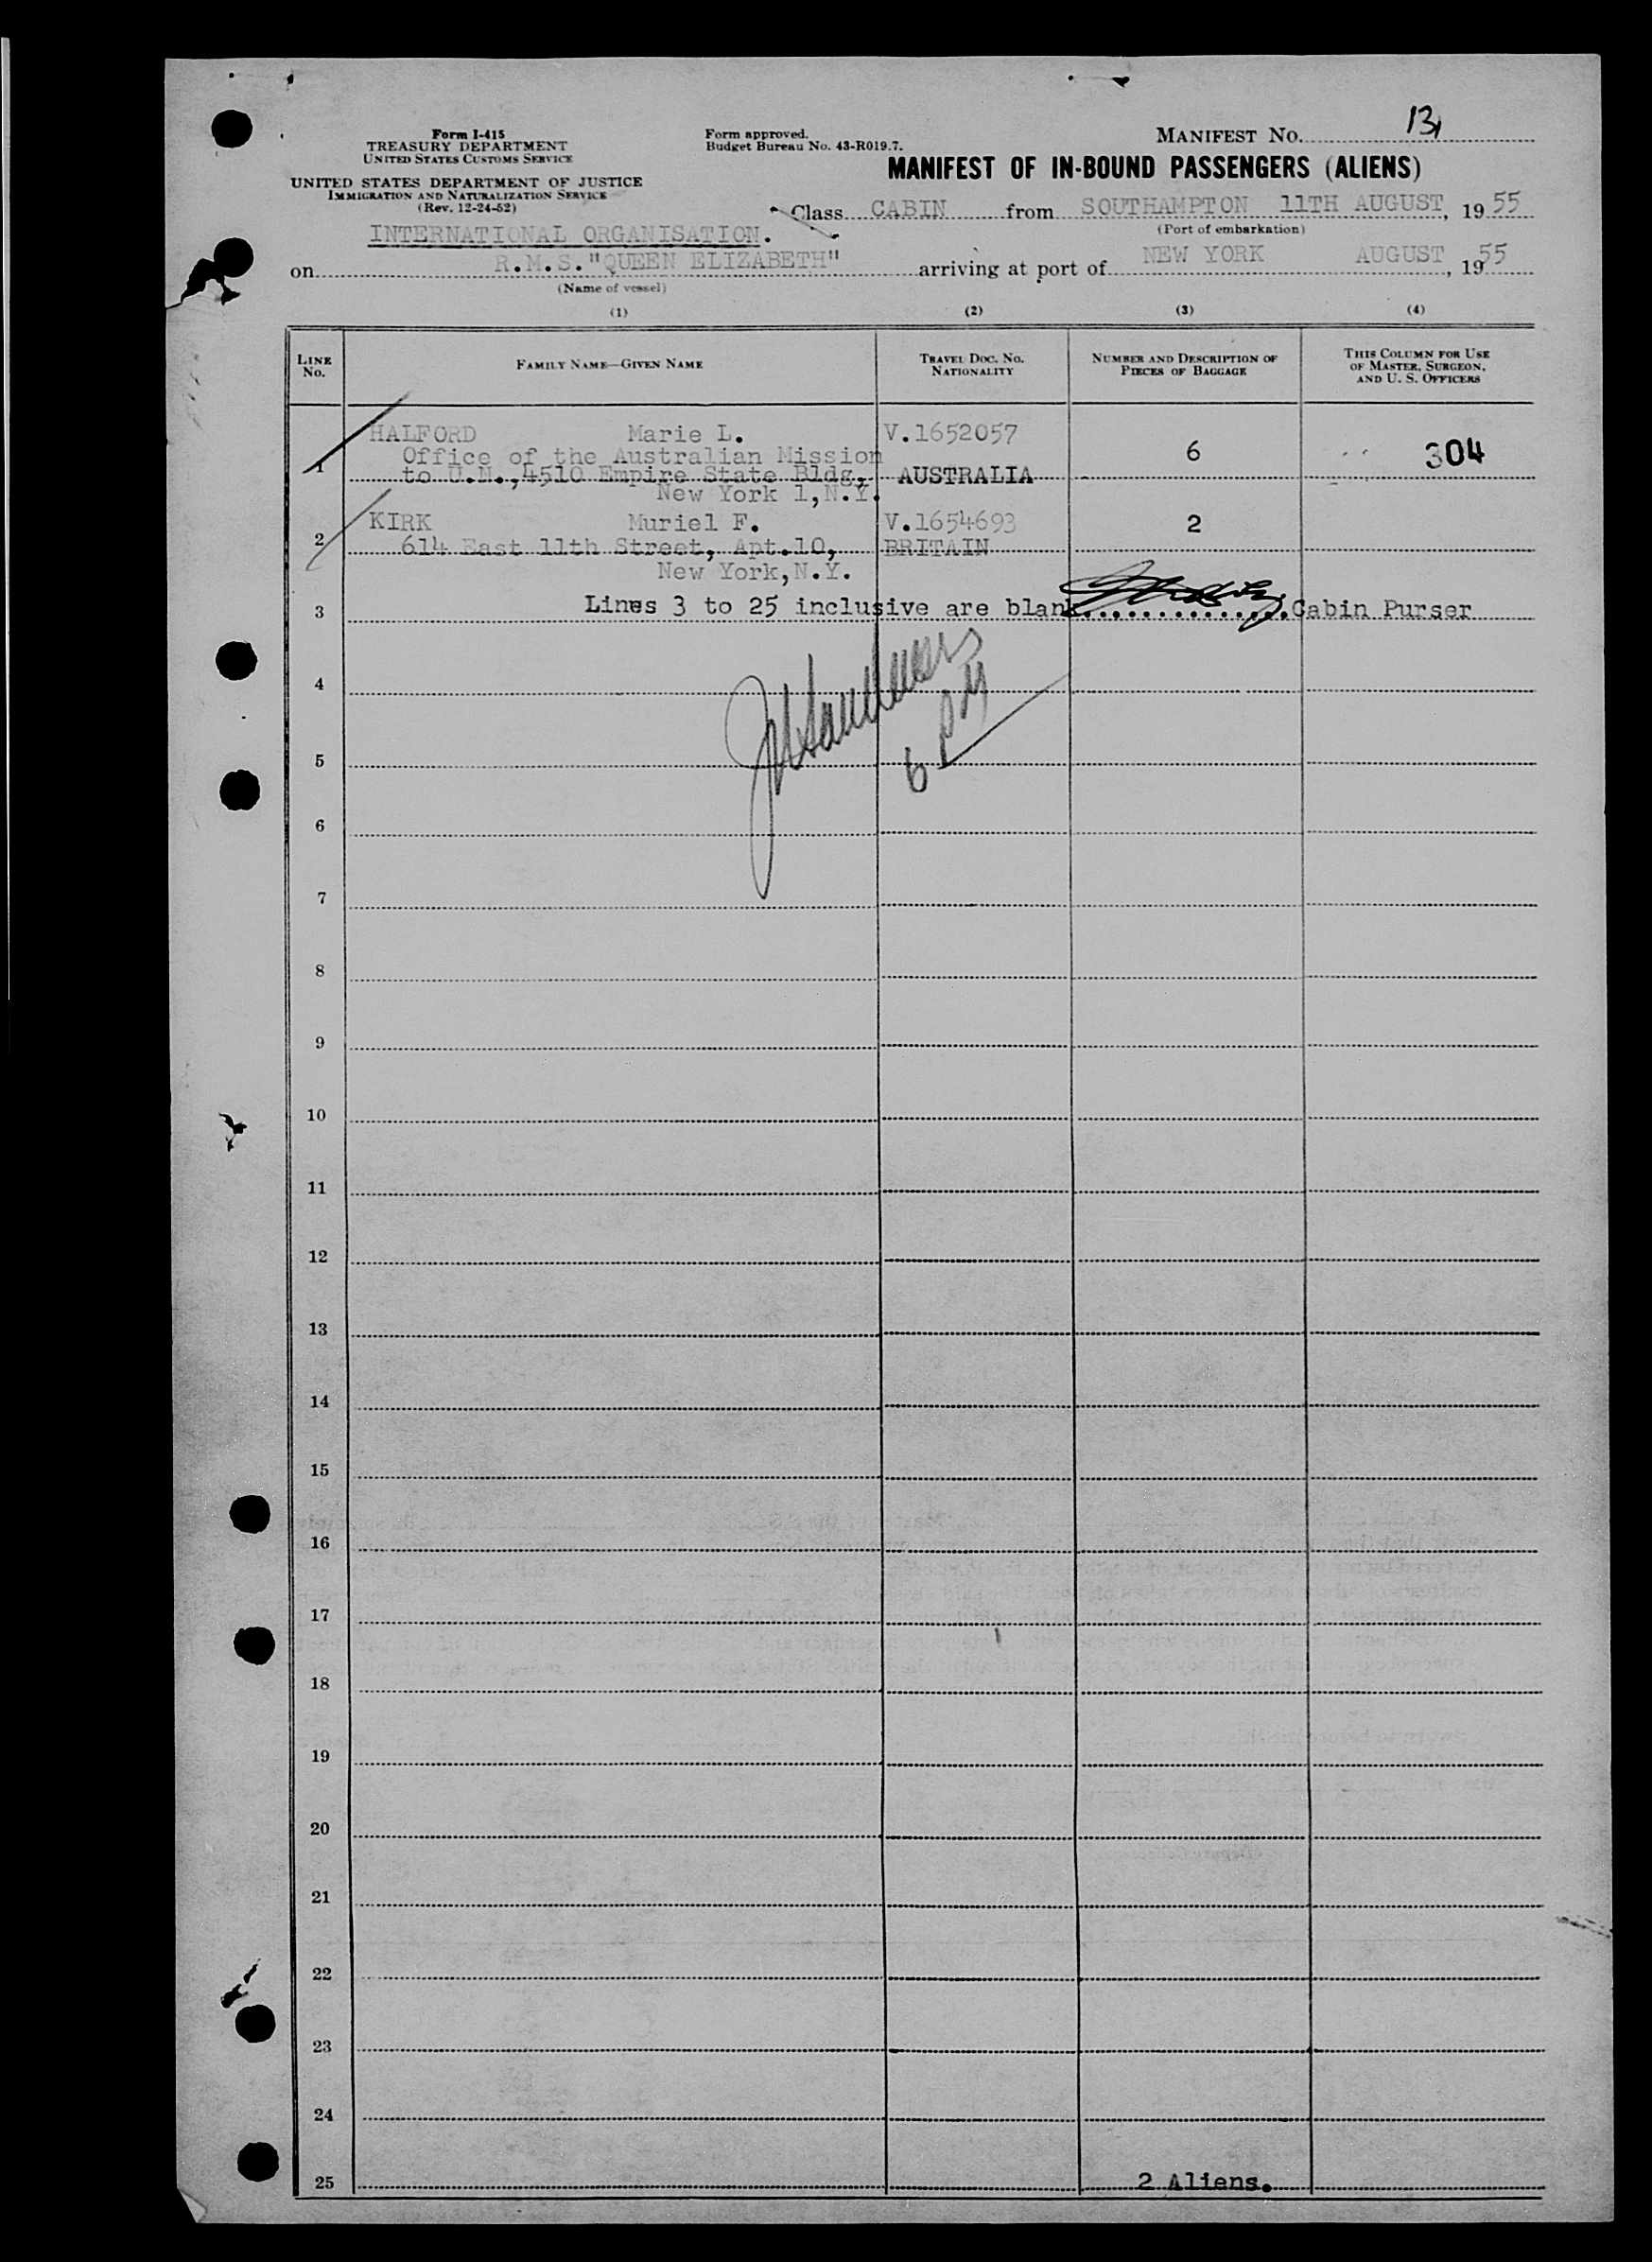 Form I-415
TREASURY DEPARTMENT
UNITED STATES CUSTOMS SERVICE
UNITED STATES DEPARTMENT OF JUSTICE
IMMIGRATION AND NATURALIZATION SERVICE
(Rev. 12-24-52)
Form approved.
Budget Bureau No. 43-R019.7.
MANIFEST No. 13
MANIFEST OF IN-BOUND PASSENGERS (ALIENS)
Class CABIN from SOUTHAMPTON 11TH AUGUST, 1955
(Port of embarkation)
INTERNATIONAL ORGANISATION.
on R.M.S."QUEEN ELIZABETH" arriving at port of NEW YORK AUGUST, 1955
(Name of vessel)
(1) (2) (3) (4)
LINE No. FAMILY NAME—GIVEN NAME TRAVEL DOC. NO. NATIONALITY NUMBER AND DESCRIPTION OF PIECES OF BAGGAGE THIS COLUMN FOR USE OF MASTER, SURGEON, AND U. S. OFFICERS
HALFORD Marie L. V.1652057
Office of the Australian Mission 6 304
1 to U.N.,4510 Empire State Bldg, AUSTRALIA
New York 1,N.Y.
KIRK Muriel F. V.1654693 2
2 614 East 11th Street, Apt.10, BRITAIN
New York,N.Y.
3 Lines 3 to 25 inclusive are blank..............Cabin Purser
4
5
6
7
8
9
10
11
12
13
14
15
16
17
18
19
20
21
22
23
24
25 2 Aliens.